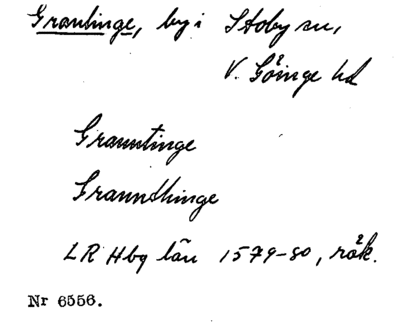 Grantinge, by i Stoby sn,
V. Göinge hd
Granntinge
Grannthinge
LR Hbg län 1579-80, räk.
Nr 6556.